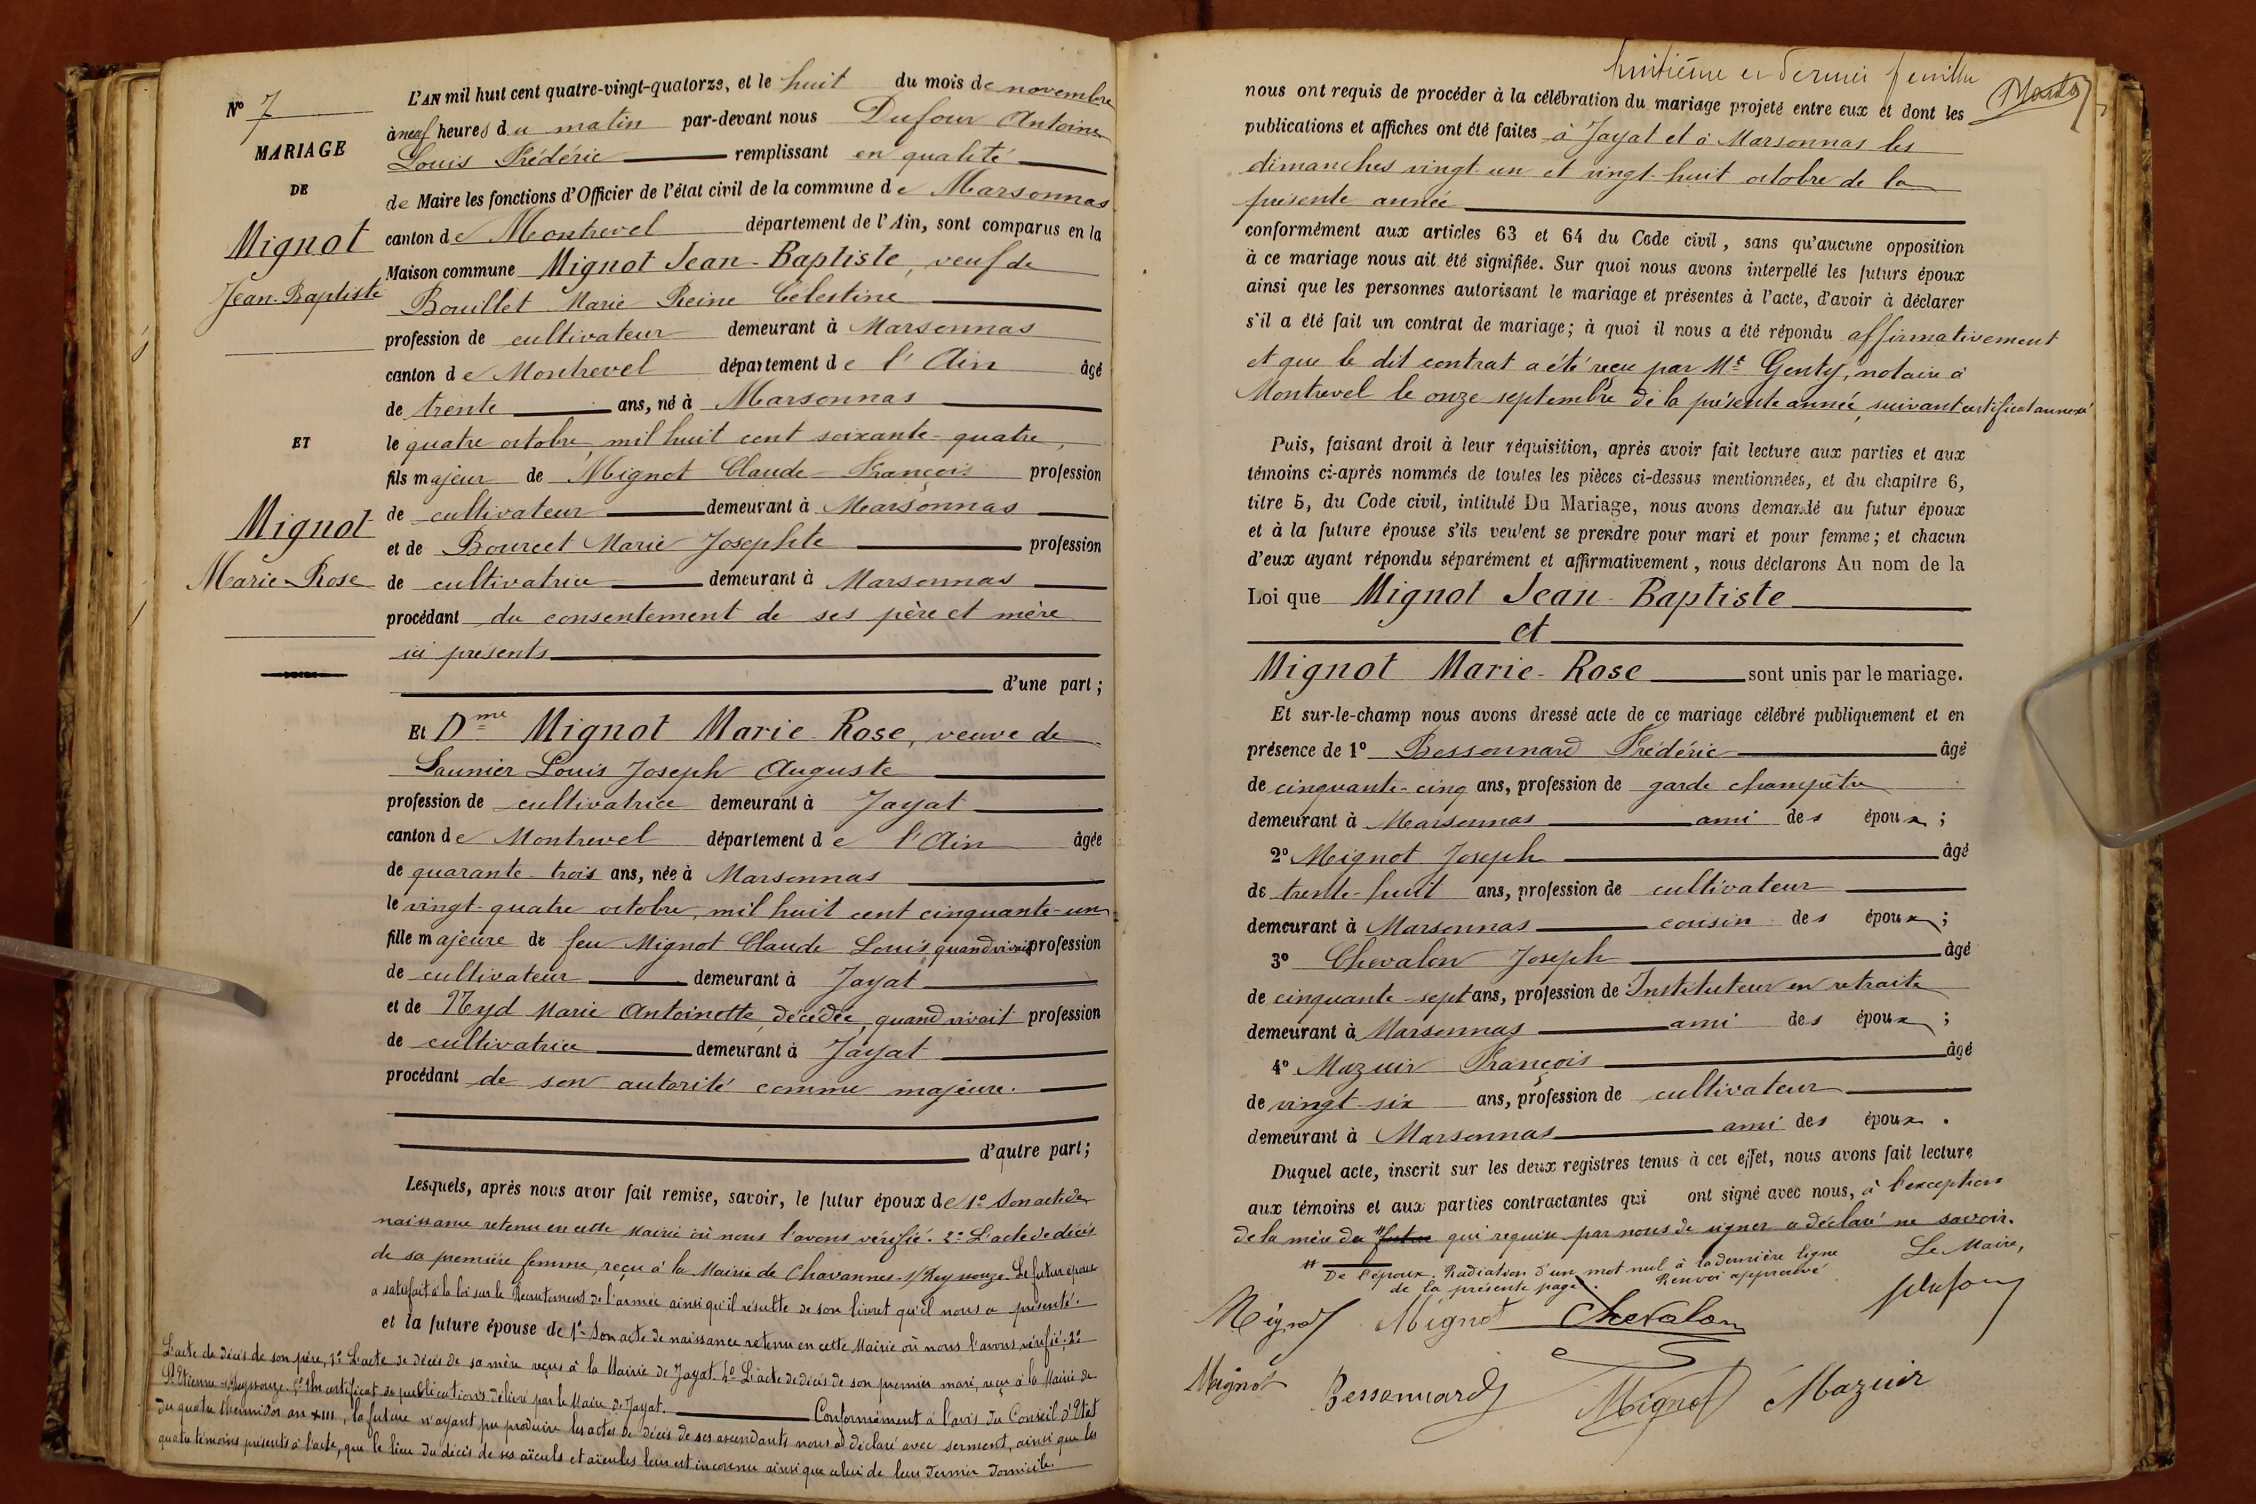 N° 7
MARIAGE
DE
Mignot
Jean-Baptiste
ET
Mignot
Marie-Rose
L'AN mil huit cent quatre-vingt-quatorze, et le huit du mois de novembre
à neuf heures du matin par-devant nous Dufour Antoine
Louis Frédéric remplissant en qualité
de Maire les fonctions d'Officier de l'état civil de la commune de Marsonnas
canton de Montrevel département de l'Ain, sont comparus en la
Maison commune Mignot Jean-Baptiste, veuf de
Bouillet Marie Reine Célestine
profession de cultivateur demeurant à Marsonnas
canton de Montrevel département de l'Ain âgé
de trente ans, né à Marsonnas
le quatre octobre mil huit cent soixante-quatre,
fils majeur de Mignot Claude-François profession
de cultivateur demeurant à Marsonnas
et de Bourcet Marie Josephte profession
de cultivatrice demeurant à Marsonnas
procédant du consentement de ses père et mère
ici présents
d'une part;
Et Dme Mignot Marie-Rose, veuve de
Saunier Louis Joseph Auguste
profession de cultivatrice demeurant à Jayat
canton de Montrevel département de l'Ain âgée
de quarante-trois ans, née à Marsonnas
le vingt-quatre octobre, mil huit cent cinquante-un
fille majeure de feu Mignot Claude Louis, quand vivait profession
de cultivateur demeurant à Jayat
et de Nyd Marie Antoinette, décédée, quand vivait profession
de cultivatrice demeurant à Jayat
procédant de son autorité comme majeure.
d'autre part;
Lesquels, après nous avoir fait remise, savoir, le futur époux de 1° Son acte de
naissance retenu en cette Mairie où nous l'avons vérifié. 2° L'acte de décès
de sa première femme, reçu à la Mairie de Chavannes-s/Reyssouze. Le futur époux
a satisfait à la loi sur le Recrutement de l'armée ainsi qu'il résulte de son livret qu'il nous a présenté.
et la future épouse de 1° Son acte de naissance retenu en cette Mairie où nous l'avons vérifié; 2°
L'acte de décès de son père, 3° L'acte de décès de sa mère reçus à la Mairie de Jayat. 4° L'acte de décès de son premier mari, reçu à la Mairie de
St Etienne-s/Reyssouze. 5° Un certificat de publications délivré par le Maire de Jayat. Conformément à l'avis du Conseil d'Etat
du quatre thermidor an XIII, la future n'ayant pu produire les actes de décès de ses ascendants nous a déclaré avec serment, ainsi que les
quatre témoins présents à l'acte, que le lieu du décès de ses aïeuls et aïeules leur est inconnu ainsi que celui de leur dernier domicile.
huitième et dernier feuillet
nous ont requis de procéder à la célébration du mariage projeté entre eux et dont les
publications et affiches ont été faites à Jayat et à Marsonnas les
dimanches vingt-un et vingt-huit octobre de la
présente année
conformément aux articles 63 et 64 du Code civil, sans qu'aucune opposition
à ce mariage nous ait été signifiée. Sur quoi nous avons interpellé les futurs époux
ainsi que les personnes autorisant le mariage et présentes à l'acte, d'avoir à déclarer
s'il a été fait un contrat de mariage; à quoi il nous a été répondu affirmativement
et que le dit contrat a été reçu par Mt Genty, notaire à
Montrevel le onze septembre de la présente année, suivant certificat annexé
Puis, faisant droit à leur réquisition, après avoir fait lecture aux parties et aux
témoins ci-après nommés de toutes les pièces ci-dessus mentionnées, et du chapitre 6,
titre 5, du Code civil, intitulé Du Mariage, nous avons demandé au futur époux
et à la future épouse s'ils veulent se prendre pour mari et pour femme; et chacun
d'eux ayant répondu séparément et affirmativement, nous déclarons Au nom de la
Loi que Mignot Jean-Baptiste
et
Mignot Marie-Rose sont unis par le mariage.
Et sur-le-champ nous avons dressé acte de ce mariage célébré publiquement et en
présence de 1° Bessonnard Frédéric âgé
de cinquante-cinq ans, profession de garde champêtre
demeurant à Marsonnas ami des époux;
2° Mignot Joseph âgé
de trente-huit ans, profession de cultivateur
demeurant à Marsonnas cousin des époux;
3° Chevalon Joseph âgé
de cinquante-sept ans, profession de Instituteur en retraite
demeurant à Marsonnas ami des époux;
4° Mazuir François âgé
de vingt-six ans, profession de cultivateur
demeurant à Marsonnas ami des époux.
Duquel acte, inscrit sur les deux registres tenus à cet effet, nous avons fait lecture
aux témoins et aux parties contractantes qui ont signé avec nous, à l'exception
de la mère du # futur qui requise par nous de signer a déclaré ne savoir.
# De l'époux. Radiation d'un mot nul à la dernière ligne
de la présente page. Renvoi approuvé
Le Maire,
Mignot Mignot Chevalon Dufour
Mignot Bessonnard Mignot Mazuir